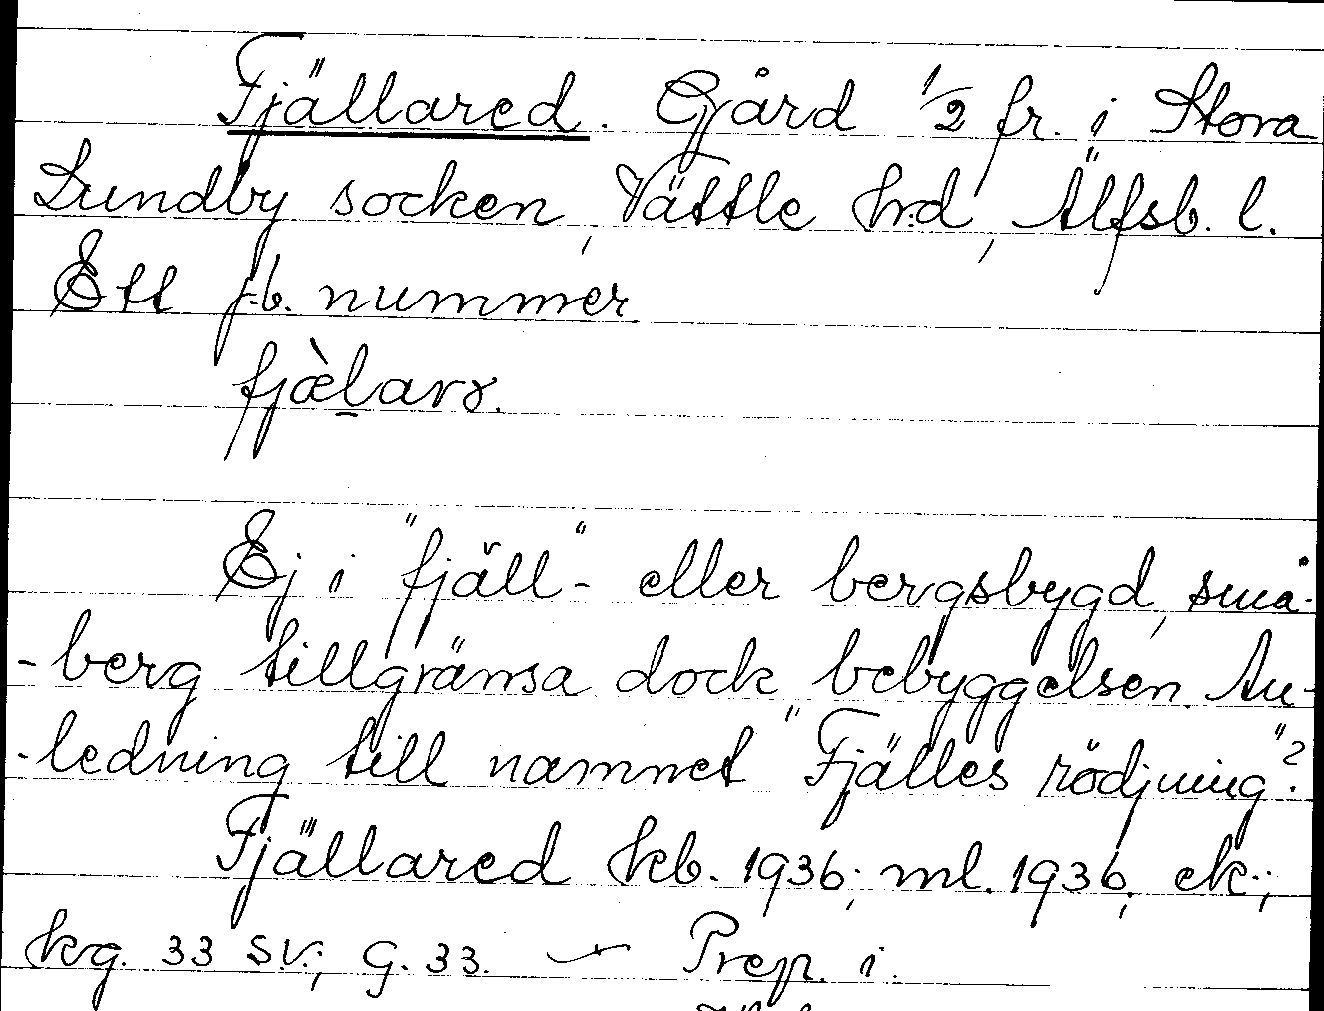 Fjällared. Gård 1/2 fr. i Stora
Lundby socken, Vättle hrd, Älfsb. l.
Ett jb. nummer
fjæ̀l̠arɤ.
Ej i "fjäll"- eller bergsbygd, små-
-berg tillgränsa dock bebyggelsen. An-
-ledning till namnet "Fjälles rödjning"?
Fjällared kb. 1936; ml. 1936; ek.;
kg. 33 SV.; G. 33. — Prep. i.